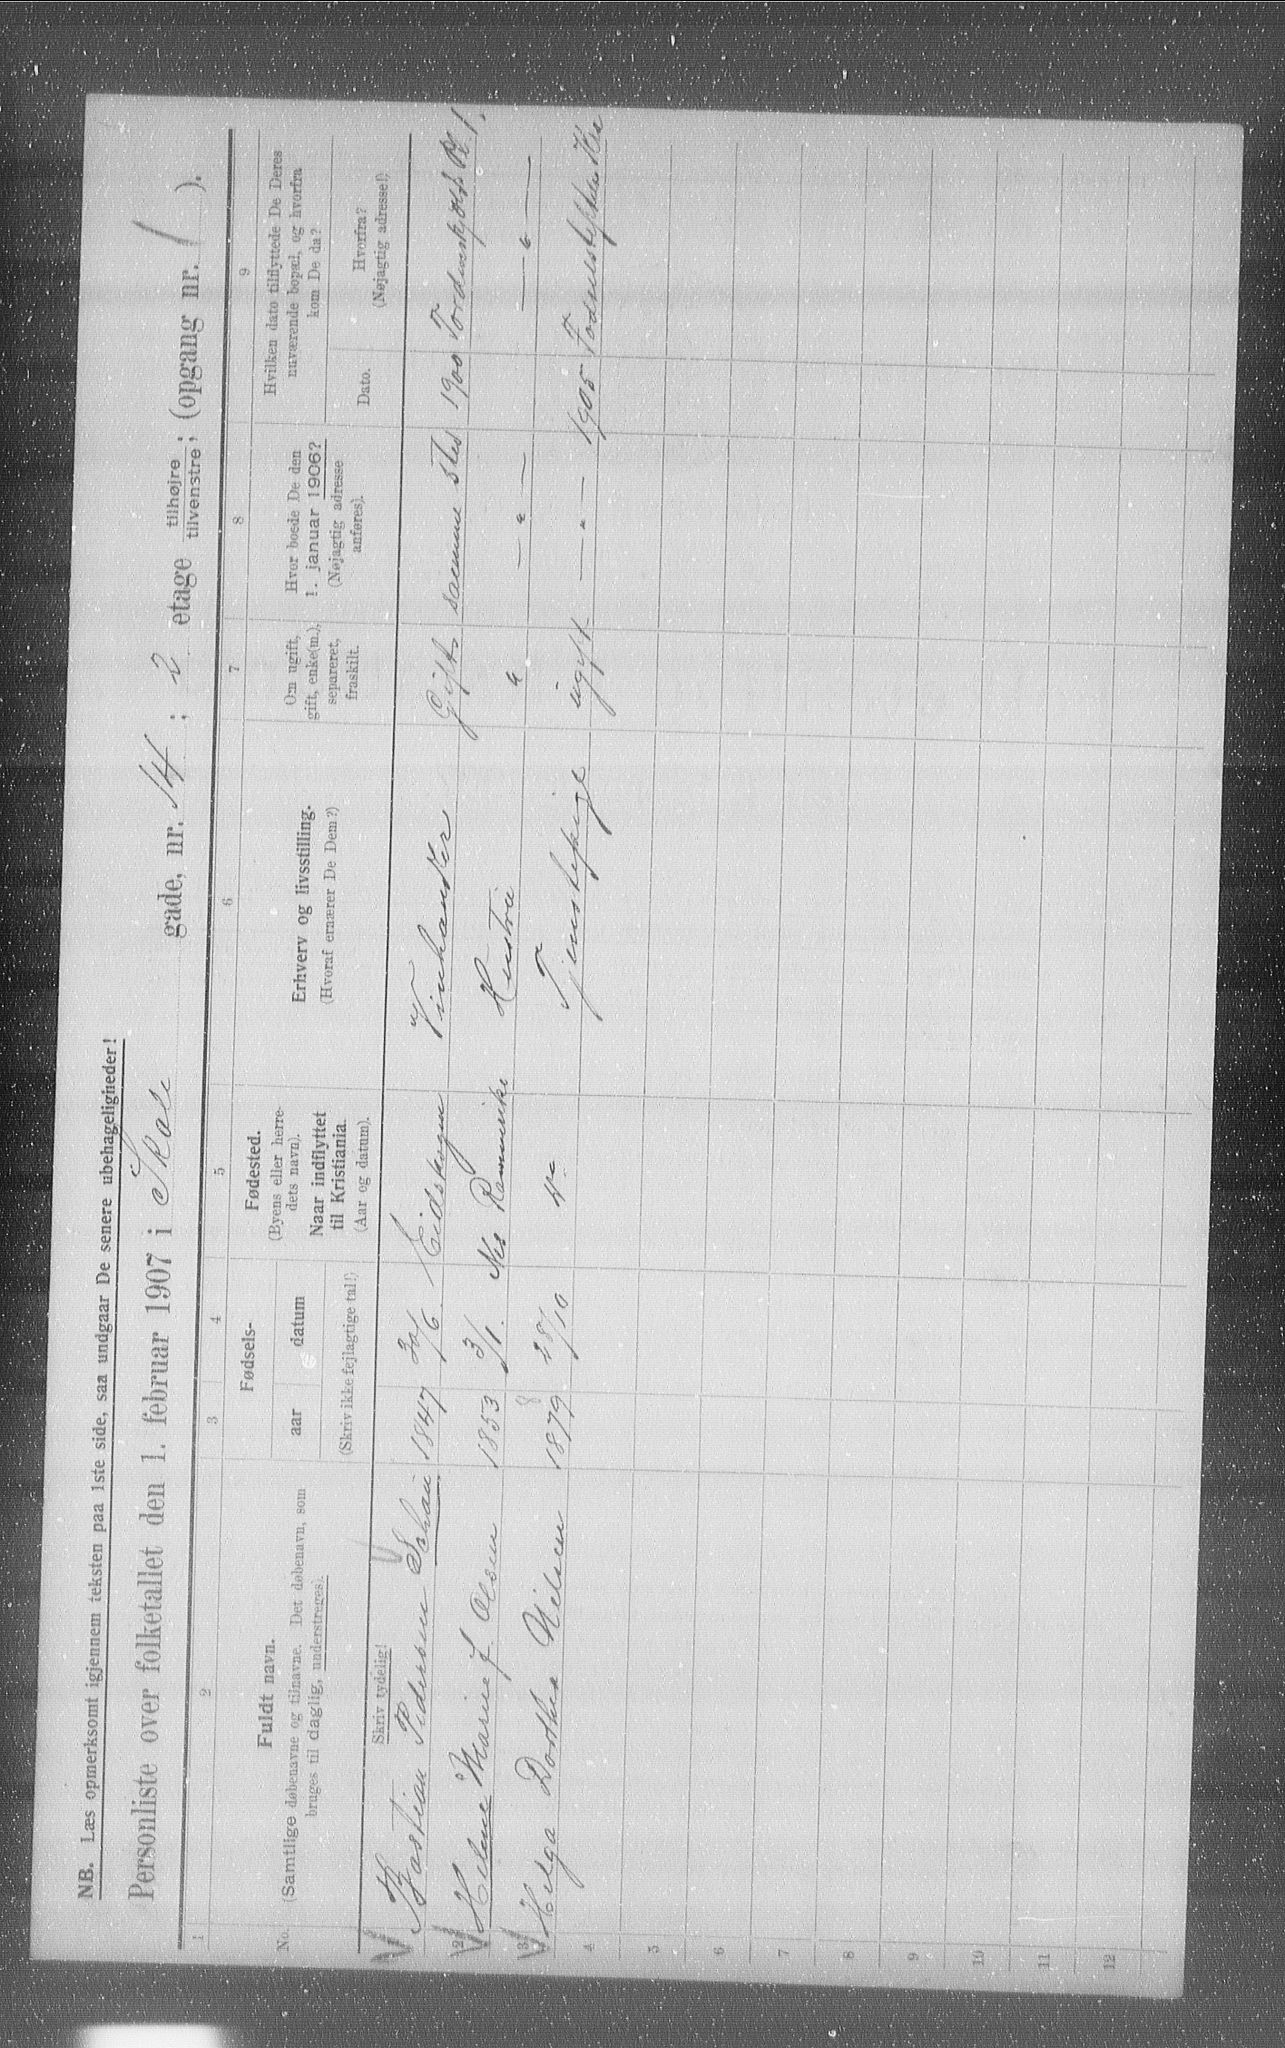 NB. Læs opmerksomt igjennem teksten paa 1ste side, saa undgaar De senere ubehageligheder!
Personliste over folketallet den 1. februar 1907 i gade, nr. 14 ; 2 etage tilhøjre tilvenstre; (opgang nr. 1 ).
1 2 3 4 5 6 7 8 9
No.
Fuldt navn.
(Samtlige døbenavne og tilnavne. Det døbenavn, som
bruges til daglig, understreges).
Fødsels-
aar datum
Fødested.
(Byens eller herre-
dets navn).
Naar indflyttet
til Kristiania.
(Aar og datum).
Erhverv og livsstilling.
(Hvoraf ernærer De Dem?)
Om ugift,
gift, enke(m.),
separeret,
fraskilt.
Hvor boede De den
1. januar 1906?
(Nøjagtig adresse
anføres).
Hvilken dato tilflyttede De Deres
nuværende bopæl, og hvorfra
kom De da?
Dato.
Hvorfra?
(Nøjagtig adresse!)
Skriv tydelig!
(Skriv ikke fejlagtige tal!)
1 Bastian Pedersen 1847 30/6 Eidskogen Vinhandler Gift samme sted 1900 Tordenskjolds Pl. 1.
2 Helene Marie f. Olsen 1853 3/1. Nes Romerike Hustru " — " — — " —
3 Helga Dorthea Nilsen 1879 8 28/10 Tjenestepige ugift — " — 1905
4
5
6
7
8
9
10
11
12